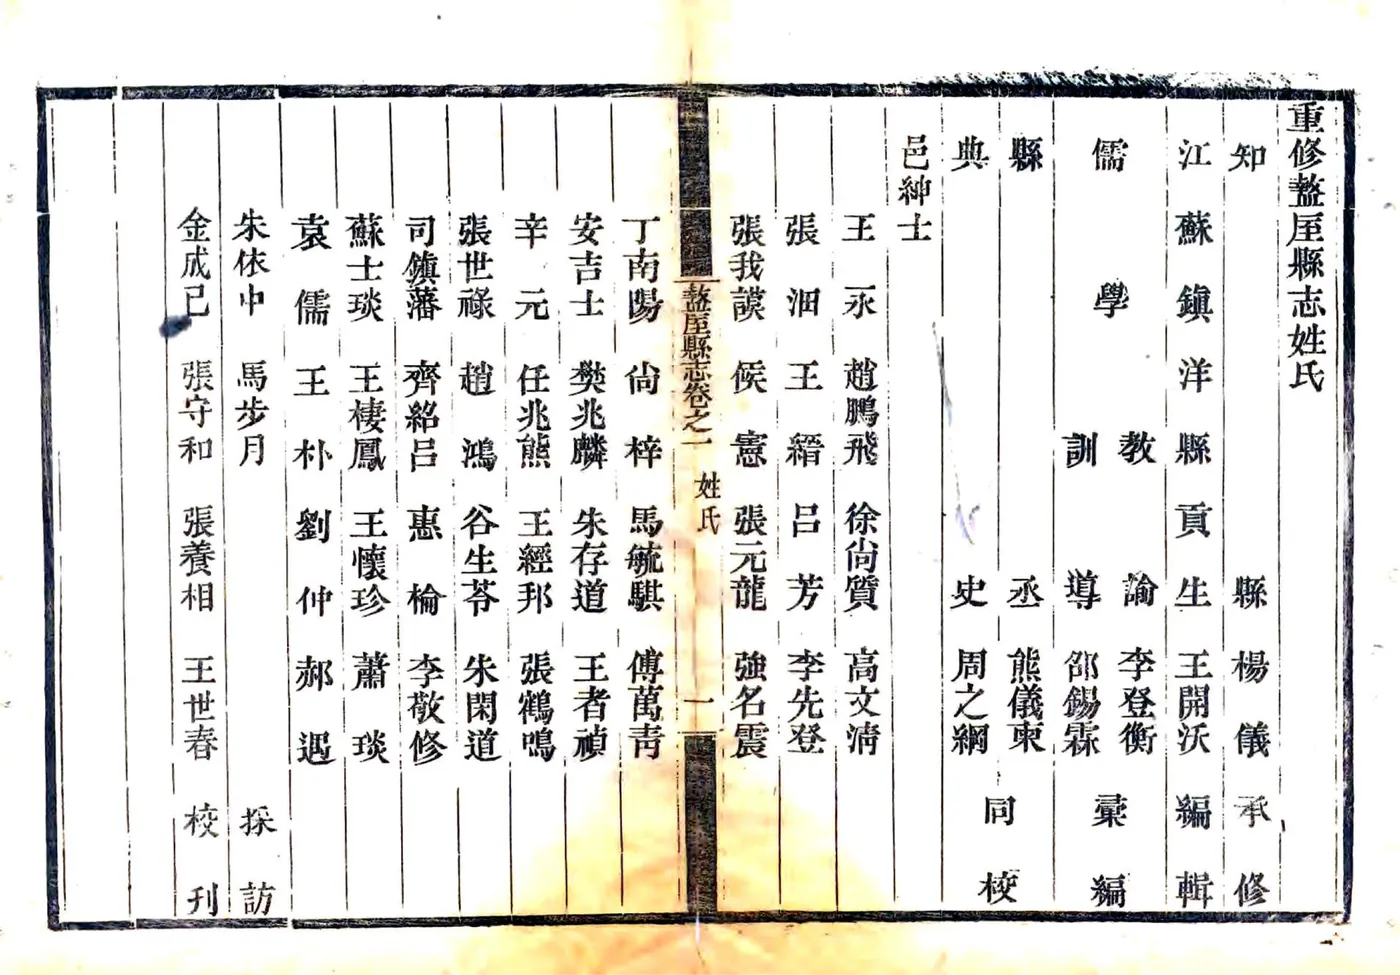 重修盩厔縣志姓氏
知縣楊儀承修
江蘇鎮洋縣貢生王開沃編輯
儒學
教諭李登衡
訓導邵錫霖
彙編
縣丞熊儀柬
典史周之綱
同校
邑紳士
王永 趙鵬飛 徐尚質 高文淸
張泗 王縉 呂芳 李先登
張我謨 侯憲 張元龍 強名震
盩厔縣志卷之一 姓氏 一
丁南陽 尚梓 馬毓騏 傅萬靑
安吉士 樊兆麟 朱存道 王者禎
辛元 任兆熊 王經邦 張鶴鳴
張世祿 趙鴻 谷生芩 朱閑道
司鎮藩 齊紹呂 惠棆 李敬修
蘇士琰 王棲鳳 王懷珍 蕭琰
袁儒 王朴 劉仲 郝遇
朱依中 馬步月 採訪
金成已 張守和 張養相 王世春 校刊